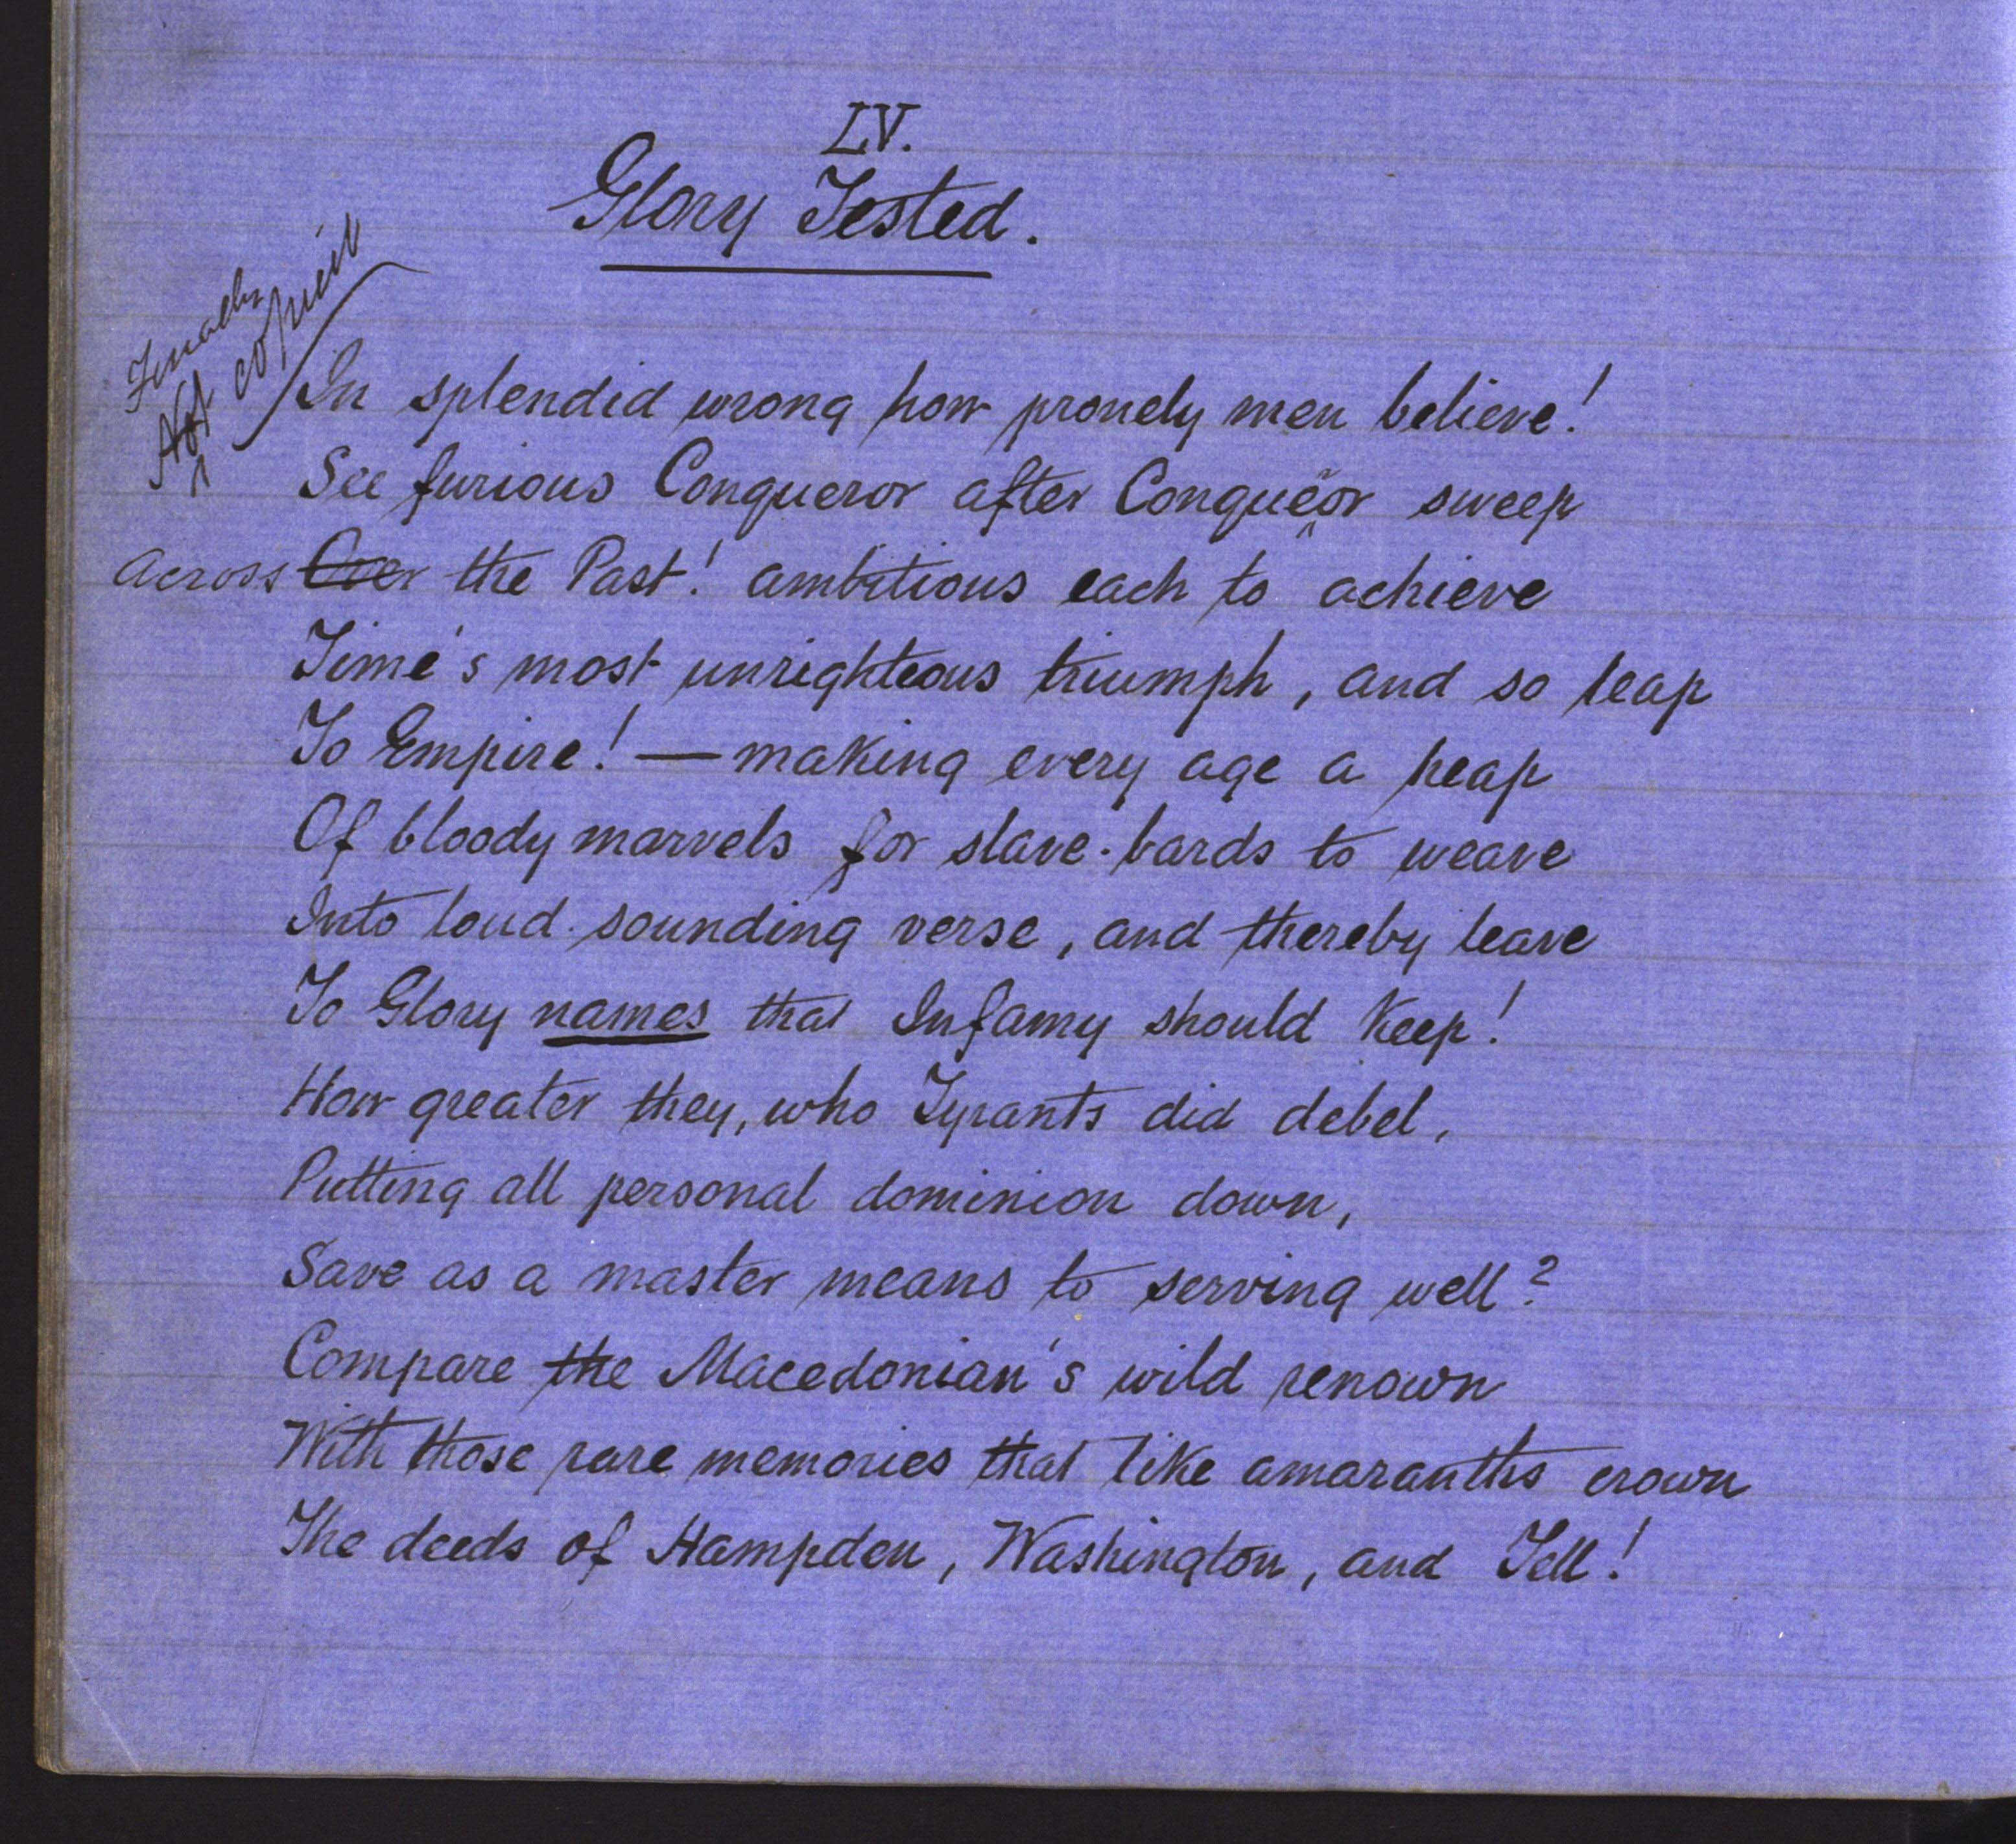 LV.
Glory Tested.
Finally
Not copied
In splendid wrong how pronely men believe!
See furious Conqueror after Conqueror sweep
Across Over the Past! ambitious each to achieve
Time's most unrighteous triumph, and so leap
To Empire! — making every age a heap
Of bloody marvels for slave-bards to weave
Into loud-sounding verse, and thereby leave
To Glory names that Infamy should keep!
How greater they, who Tyrants did debel,
Putting all personal dominion down,
Save as a master means to serving well?
Compare the Macedonian's wild renown
With those rare memories that like amaranths crown
The deeds of Hampden, Washington, and Tell!